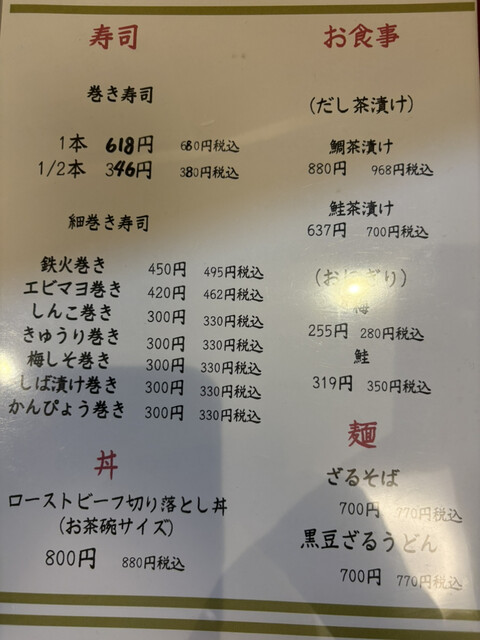 寿司
巻き寿司
1本 618円 680円税込
1/2本 346円 380円税込
細巻き寿司
鉄火巻き 450円 495円税込
エビマヨ巻き 420円 462円税込
しんこ巻き 300円 330円税込
きゅうり巻き 300円 330円税込
梅しそ巻き 300円 330円税込
しば漬け巻き 300円 330円税込
かんぴょう巻き 300円 330円税込
丼
ローストビーフ切り落とし丼
(お茶碗サイズ)
800円 880円税込
お食事
(だし茶漬け)
鯛茶漬け
880円 968円税込
鮭茶漬け
637円 700円税込
(おにぎり)
梅
255円 280円税込
鮭
319円 350円税込
麺
ざるそば
700円 770円税込
黒豆ざるうどん
700円 770円税込